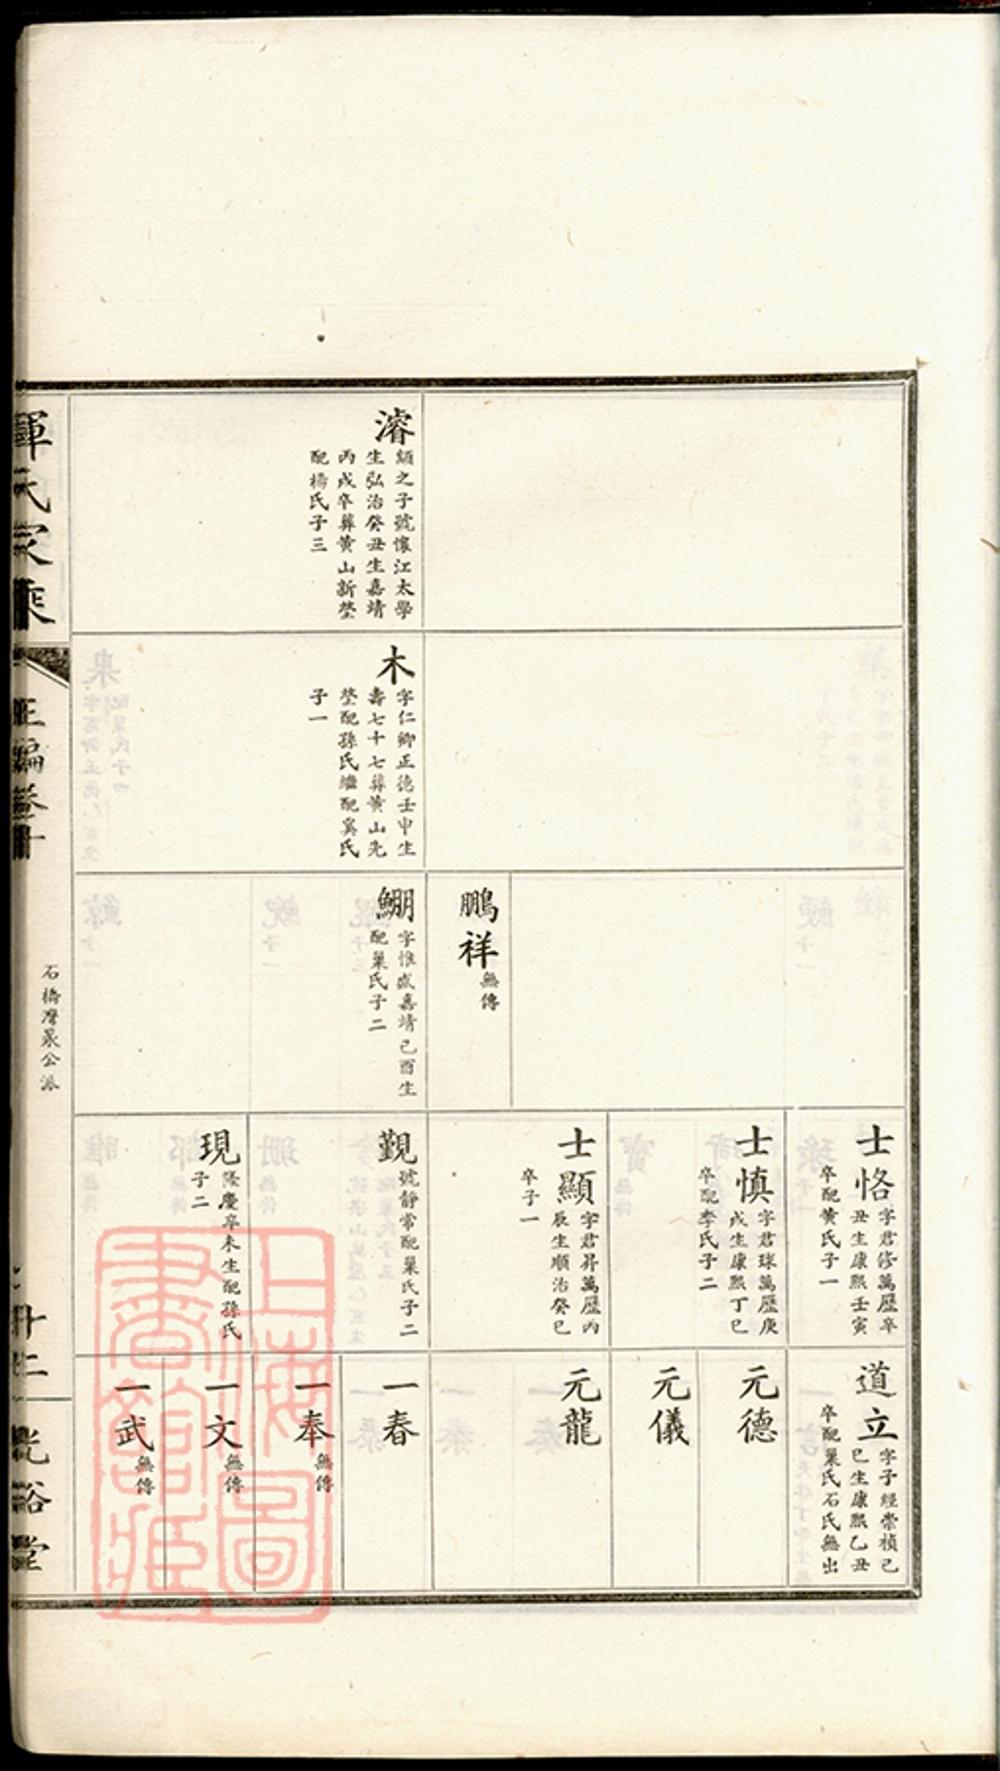 濬
纈之子號懷江太學
生弘治癸丑生嘉靖
丙戌卒葬黃山新塋
配楊氏子三
木
字仁卿正德壬申生
壽七十七葬黃山先
塋配孫氏繼配奚氏
子一
鵬祥
無傳
鯝
字惟咸嘉靖己酉生
配巢氏子二
士恪
字君修萬歷辛
丑生康熙壬寅
卒配黃氏子一
士慎
字君球萬歷庚
戌生康熙丁巳
卒配李氏子二
士顯
字君昇萬歷丙
辰生順治癸巳
卒子一
覲
號靜常配巢氏子二
現
隆慶辛未生配孫氏
子二
道立
字子經崇禎己
巳生康熙乙丑
卒配巢氏石氏無出
元德
元儀
元龍
一春
一奉
無傳
一文
無傳
一武
無傳
惲氏家乘
正編卷十
石橋灣泉公派
廿二
光裕堂
上海圖
書館藏